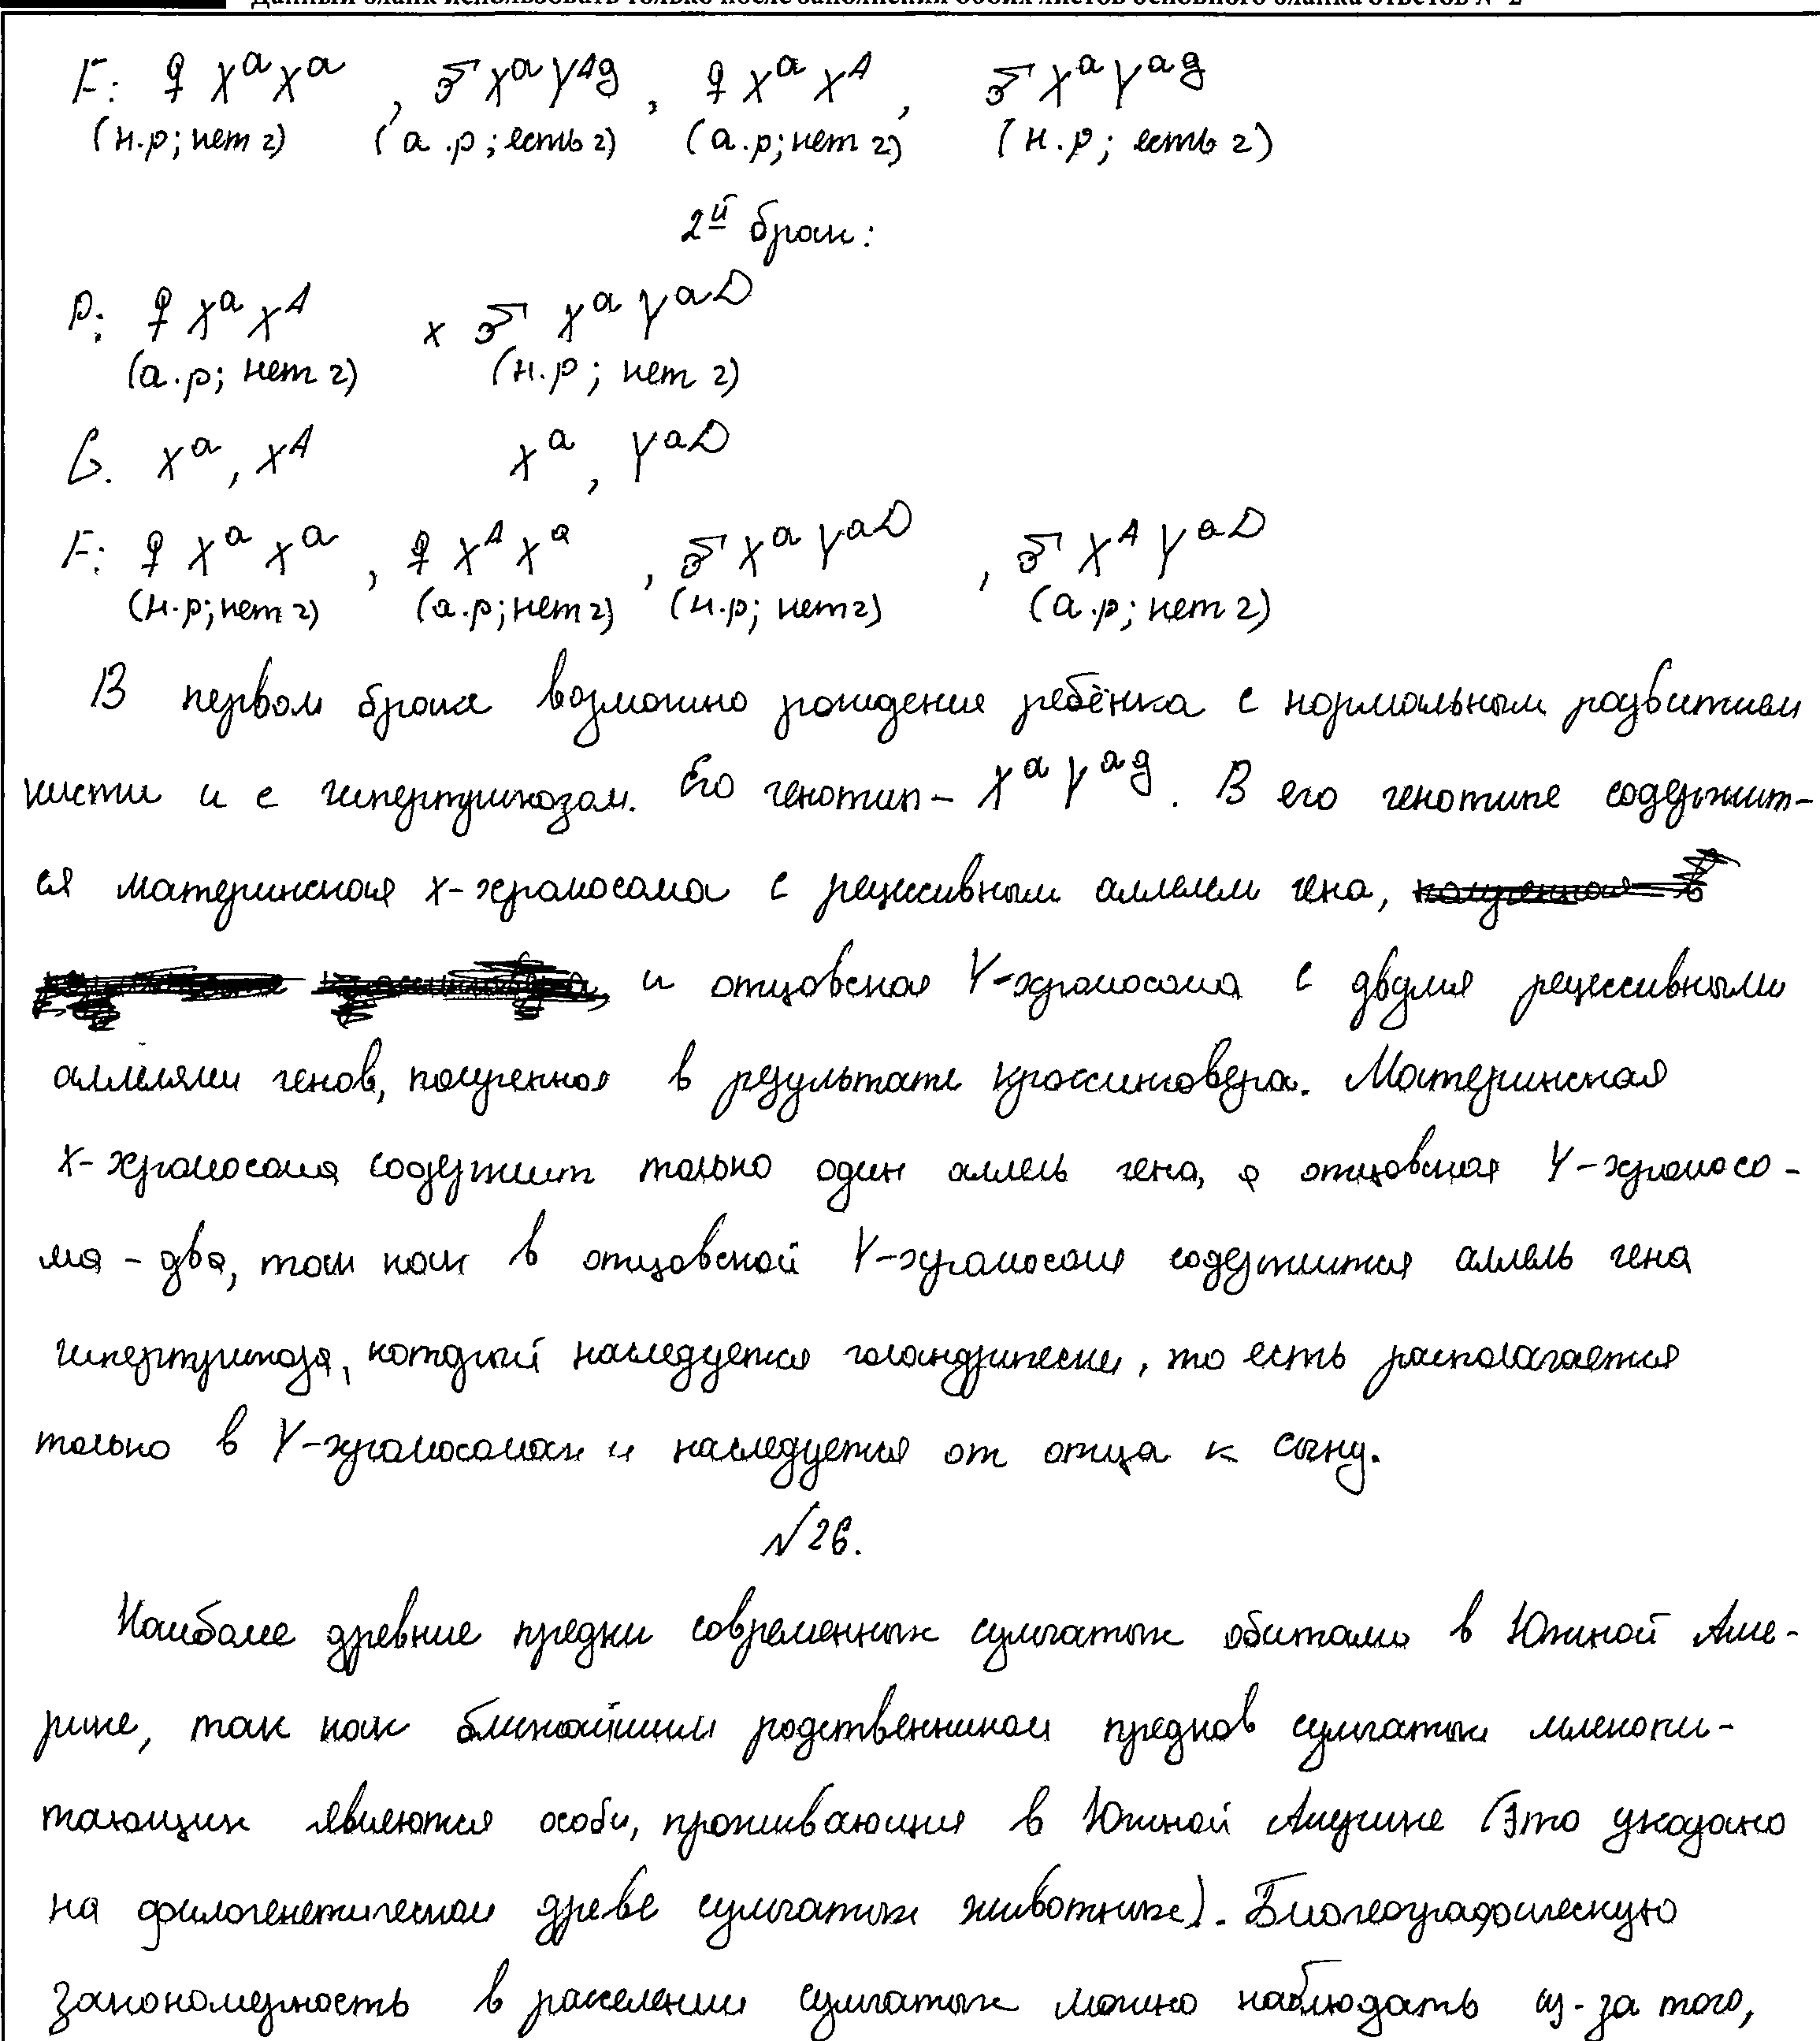 Данный бланк использовать только после заполнения обоих листов основного бланка ответов № 2
F: ♀ XᵃXᵃ , ♂ XᵃYᴬᵍ , ♀ XᵃXᴬ , ♂ XᵃYᵃᵍ
(н.р; нет г) (а.р; есть г) (а.р; нет г) (н.р; есть г)
2й брак:
P: ♀ XᵃXᴬ x ♂ XᵃYᵃᴰ
(а.р; нет г) (н.р; нет г)
G. Xᵃ, Xᴬ Xᵃ, Yᵃᴰ
F: ♀ XᵃXᵃ , ♀ XᴬXᵃ , ♂ XᵃYᵃᴰ , ♂ XᴬYᵃᴰ
(н.р; нет г) (а.р; нет г) (н.р; нет г) (а.р; нет г)
В первом браке возможно рождение ребёнка с нормальным развитием
кисти и с гипертрихозом. Его генотип - XᵃYᵃᵍ. В его генотипе содержит-
ся материнская х-хромосома с рецессивным аллелем гена,
и отцовская Y-хромосома с двумя рецессивными
аллелями генов, полученная в результате кроссинговера. Материнская
Х-хромосома содержит только один аллель гена, а отцовская Y-хромосо-
ма - два, так как в отцовской Y-хромосоме содержится аллель гена
гипертрихоза, который наследуется голандрически, то есть располагается
только в Y-хромосомах и наследуется от отца к сыну.
№26.
Наиболее древние предки современных сумчатых обитали в Южной Аме-
рике, так как ближайшими родственниками предков сумчатых млекопи-
тающих являются особи, проживающие в Южной Америке (Это указано
на филогенетическом древе сумчатых животных). Биогеографическую
закономерность в расселении сумчатых можно наблюдать из-за того,